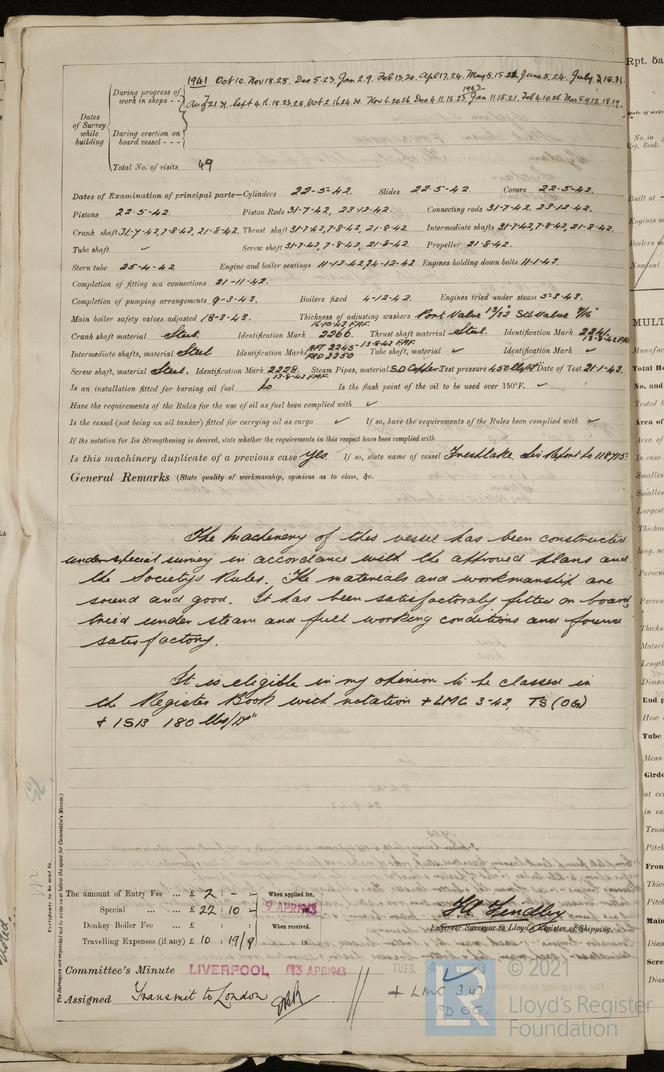 1941 Oct 10. Nov 18. 28. Dec 5. 23. Jan 2. 9. Feb 13. 20. Apl 17. 24. May 8. 15 June 5. 24. July 16. 31.
During progress of
work in shops - -
1942
Aug 21. 31. Sept 4. 11. 18. 23. 25. Oct 2. 16. 24. 30. Nov 6. 20. 26. Dec 4. 11. 15. 23. Jan 11. 15. 21. Feb 4. 10. 26. Mar 5. 9. 12. 18. 19.
Dates
of Survey
while
building
During erection on
board vessel - - -
Total No. of visits 49
Dates of Examination of principal parts—Cylinders 22-5-42. Slides 22-5-42 Covers 22-5-42.
Pistons 22-5-42. Piston Rods 31-7-42, 23-12-42. Connecting rods 31-7-42. 23-12-42.
Crank shaft 31-7-42, 7-8-42, 21-8-42. Thrust shaft 31-7-42, 7-8-42, 21-8-42 Intermediate shafts 31-7-42, 7-8-42, 21-8-42.
Tube shaft ✓ Screw shaft 31-7-42, 7-8-42, 21-8-42. Propeller 21-8-42.
Stern tube 25-4-42 Engine and boiler seatings 11-12-42, 24-12-42 Engines holding down bolts 11-1-43.
Completion of fitting sea connections 21-11-42.
Completion of pumping arrangements 9-3-43. Boilers fixed 4-12-42. Engines tried under steam 5-3-43.
Main boiler safety valves adjusted 18-3-43. Thickness of adjusting washers Port Valve 13/32" Stb Valve 7/16"
16-10-42 FAF.
Crank shaft material Steel. Identification Mark 2266. Thrust shaft material Steel. Identification Mark 2241
13-8-42 FAF
Intermediate shafts, material Steel Identification Marks AFT 2245 - 13-8-42 FAF Tube shaft, material ✓ Identification Mark ✓
FRD 2250
Screw shaft, material Steel. Identification Mark 2228 Steam Pipes, material S.D Copper Test pressure 450 lbs/□" Date of Test 21-1-43.
13-8-42 FAF
Is an installation fitted for burning oil fuel no Is the flash point of the oil to be used over 150°F. ✓
Have the requirements of the Rules for the use of oil as fuel been complied with ✓
Is the vessel (not being an oil tanker) fitted for carrying oil as cargo ✓ If so, have the requirements of the Rules been complied with ✓
If the notation for Ice Strengthening is desired, state whether the requirements in this respect have been complied with
Is this machinery duplicate of a previous case Yes If so, state name of vessel Freshlake
General Remarks (State quality of workmanship, opinions as to class, &c.
The machinery of this vessel has been constructed
under special survey in accordance with the approved plans and
the Society's Rules. The materials and workmanship are
sound and good. It has been satisfactoraly fitted on board,
tried under steam and full working conditions and found
satisfactory.
It is eligible in my opinion to be classed in
the Register Book with notation + LMC 3-42, TS (OG)
+ 1SB 180 lbs/□"
Certificate to be sent to
The Surveyors are requested not to write on or below the space for Committee's Minute.)
The amount of Entry Fee ... £ 2 : - : - When applied for,
Special ... ... £ 22 : 10 - 9 APR 1943
Donkey Boiler Fee ... £ When received,
Travelling Expenses (if any) £ 10 : 19/9 19
F.A. Findley
Engineer Surveyor to Lloyd's Register of Shipping.
Committee's Minute LIVERPOOL 13 APR 1943
TUES. 4
Assigned Transmit to London
+ LMC 3.43
FD OG.
© 2021
LR
Lloyd's Register
Foundation
Rpt. 5a
No. in
Reg. Book.
Built at
Engines m
Boilers m
Nominal
MULT
Manufac
Total He
No. and
Tested b
Area of
Area of
In case
Smalles
Smalles
Largest
Thickn
long. se
Percen
Percen
Thickn
Materi
Length
Dimen
End p
How
Tube
Mean
Girde
at cen
in ea
Tensi
Pitch
Fron
Thick
Pitch
Main
Diam
Scre
Diam